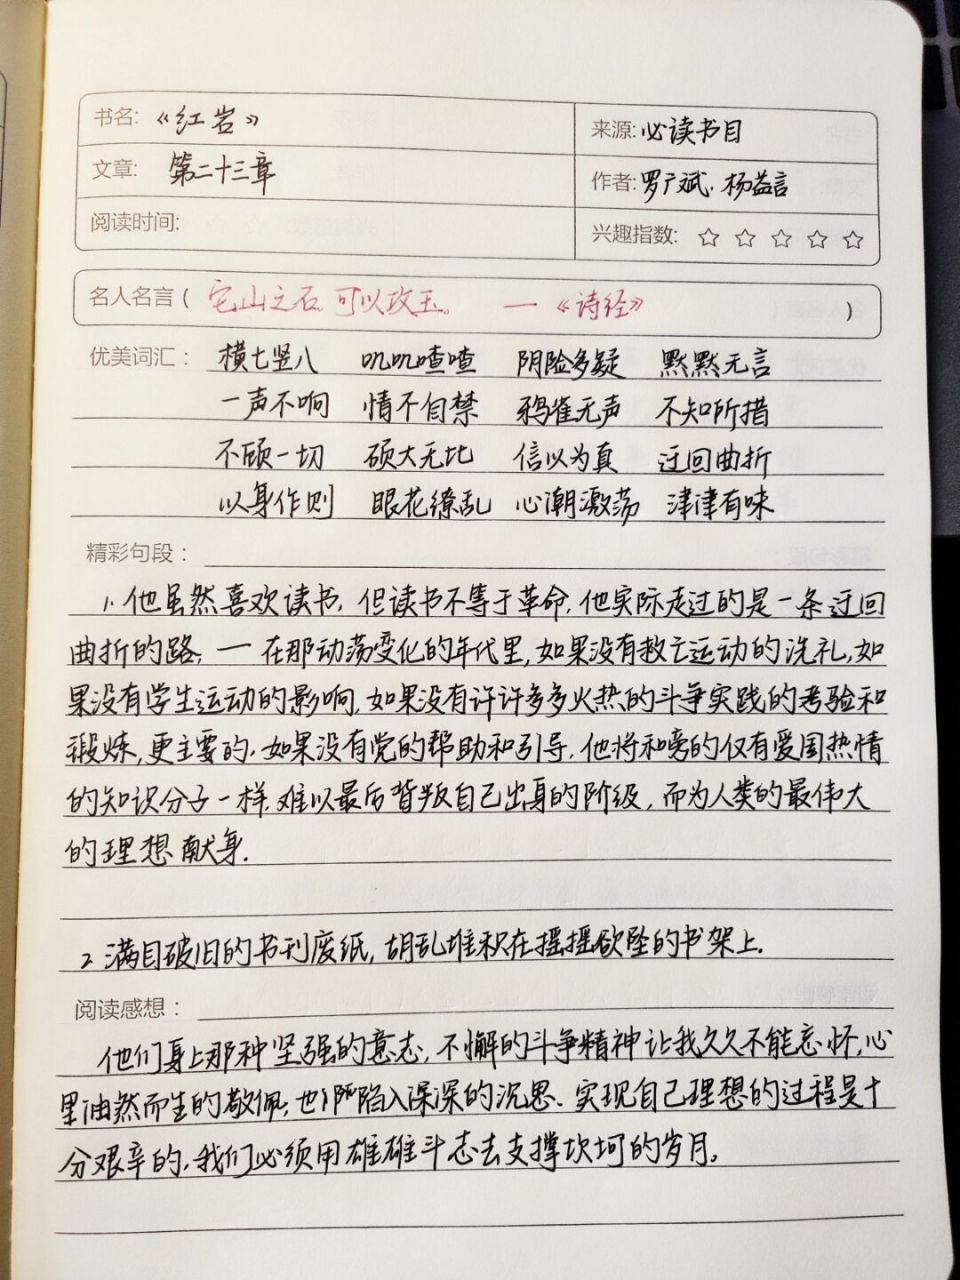 书名: 《红岩》
来源: 必读书目
文章: 第二十三章
作者: 罗广斌. 杨益言
阅读时间:
兴趣指数: ☆ ☆ ☆ ☆ ☆
名人名言( 它山之石 可以攻玉。 —《诗经》 )
优美词汇: 横七竖八 叽叽喳喳 阴险多疑 默默无言
一声不响 情不自禁 鸦雀无声 不知所措
不顾一切 硕大无比 信以为真 迂回曲折
以身作则 眼花缭乱 心潮激荡 津津有味
精彩句段:
1. 他虽然喜欢读书, 但读书不等于革命, 他实际走过的是一条迂回
曲折的路, —在那动荡变化的年代里, 如果没有救亡运动的洗礼, 如
果没有学生运动的影响, 如果没有许许多多火热的斗争实践的考验和
锻炼, 更主要的, 如果没有党的帮助和引导, 他将和旁的仅有爱国热情
的知识分子一样, 难以最后背叛自己出身的阶级, 而为人类的最伟大
的理想献身.
2. 满目破旧的书刊废纸, 胡乱堆积在摇摇欲坠的书架上.
阅读感想:
他们身上那种坚强的意志, 不懈的斗争精神让我久久不能忘怀, 心
里油然而生的敬佩, 也陷入深深的沉思. 实现自己理想的过程是十
分艰辛的, 我们必须用雄雄斗志去支撑坎坷的岁月。